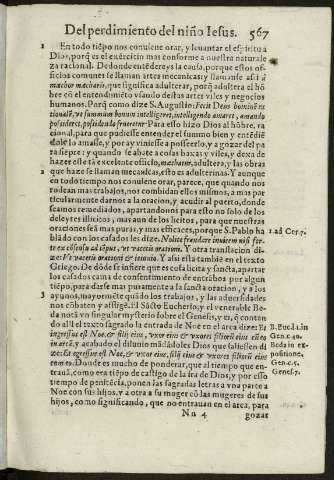 Del perdimiento del niño Iesus. 567
1 En todo tiẽpo nos conuiene orar, y leuantar el espiritu a
Dios, porq̃ es el exercicio mas conforme a nuestra naturale
za racional. De donde entẽdereys la causa, porque estos of-
ficios comunes se llaman artes mecanicas: y llamanse assi à
machor macharis, que significa adulterar, porq̃ adultera el hõ
bre cõ el entendimiẽto vsando destas artes viles y negocios
humanos. Porq̃ como dize S. Augustin: Fecit Deus hominẽ ra
tionalẽ, vt summum bonum intelligeret, intelligendo amaret, amando
possideret, possidendo frueretur. Para esso hizo Dios al hõbre, ra-
cional, para que pudiesse entender el summo bien y entẽdiẽ
dole lo amasse, y por ay viniesse a posseerlo, y a gozar del pa
ra siẽpre: y quando se abate a cosas baxas, y viles, y dexa de
hazer este tã excelente officio, machatur, adultera, y las obras
2 que haze se llaman mecanicas, esto es adulterinas. Y aunque
en todo tiempo nos conuiene orar, parece, que quando nos
rodean mas trabajos, nos combidan ellos mismos, a mas par
ticularmente darnos a la oracion, y acudir al puerto, donde
seamos remediados, apartandonos para esto no solo de los
deleytes illicitos, mas aun de los licitos, para que nuestras
oraciones seã mas puras, y mas efficaces, porque S. Pablo ha 1. ad Cor. 7.
blãdo con los casados les dize: Nolite fraudare inuicem nisi for-
te ex consensu ad tẽpus, vt vacetis orationi. Y otra translacion di-
ze: Vt vacetis orationi & ieiunio. Y assi esta tambiẽ en el texto
Griego. De dõde se infiere que es cosa licita y sancta, apartar
los casados cama de consentimiento de entrãbos por algun
tiẽpo, para darse mas puramente a la sancta oracion, y a los
3 ayunos, mayormẽte quãdo los trabajos, y las aduersidades
nos cõbaten y afligẽ. El Sãcto Eucherio, y el venerable Be-
da notã vn singular mysterio sobre el Genesis, y es, q̃ contan
do alli el texto sagrado la entrada de Noe en el arca dize: Et B. Euc. l. 1. in
ingressus est Noe, & filij eius, vxor eius & vxores filiorũ eius cũ eo Gen. c. 40.
in arcã. Y acabado el diluuio mãdãdoles Dios que saliessen di Beda in ex-
ze: Et egressus est Noe, & vxor eius, filij eius & vxores filiorũ eius positione.
cum eo. Donde es mucho de ponderar, que al tiempo que en- Gen. c. 5.
trauã, como era tiẽpo de castigo de la ira de Dios, y por esso Genes. 7.
tiempo de penitẽcia, ponen las sagradas letras a vna parte a
Noe con sus hijos, y a otra a su muger cõ las mugeres de sus
hijos, como significando, que no entrauan en el arca, para
Nn 4 gozar